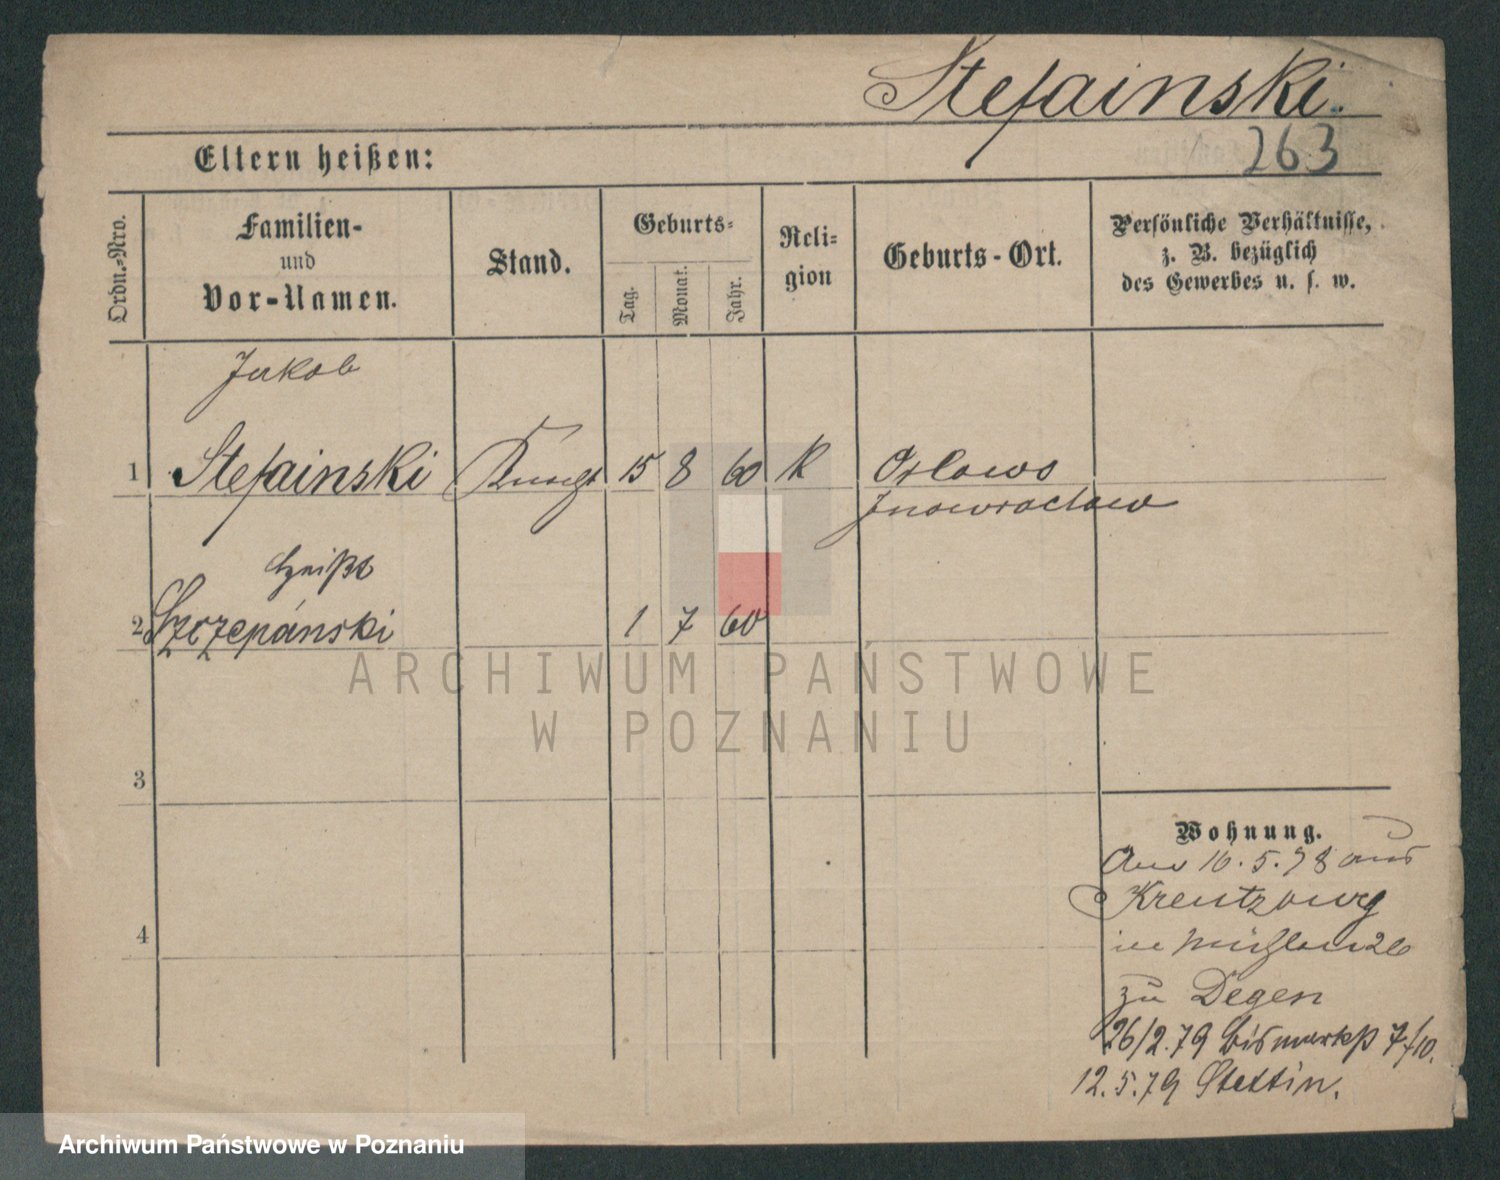 Stefainski.
263
Eltern heißen:
Ordn.-Nro.
Familien-
und
Vor-Namen.
Stand.
Geburts-
Tag.
Monat.
Jahr.
Reli-
gion
Geburts-Ort.
Persönliche Verhältnisse,
z. B. bezüglich
des Gewerbes u. s. w.
Jakob
1 Stefainski Knecht 15 8 60 K Orlowo
Inowraclaw
heißt
2 Szczepánski 1 7 60
ARCHIWUM PAŃSTWOWE
W POZNANIU
3
4
Wohnung.
16.5.78 aus
Kreutzburg
zu Degen
26/2.79 Bismarkst 7/10.
12.5.79 Stettin.
Archiwum Państwowe w Poznaniu